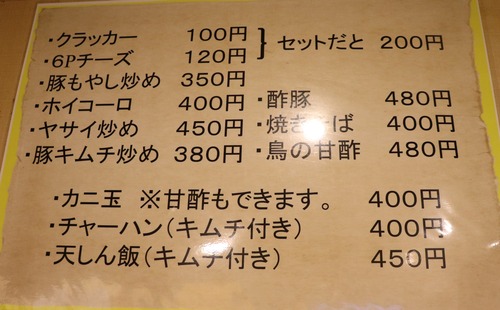 ・クラッカー 100円
・6Pチーズ 120円
} セットだと 200円
・豚もやし炒め 350円
・ホイコーロ 400円
・ヤサイ炒め 450円
・豚キムチ炒め 380円
・酢豚 480円
・焼きそば 400円
・鳥の甘酢 480円
・カニ玉 ※甘酢もできます。 400円
・チャーハン(キムチ付き) 400円
・天しん飯(キムチ付き) 450円